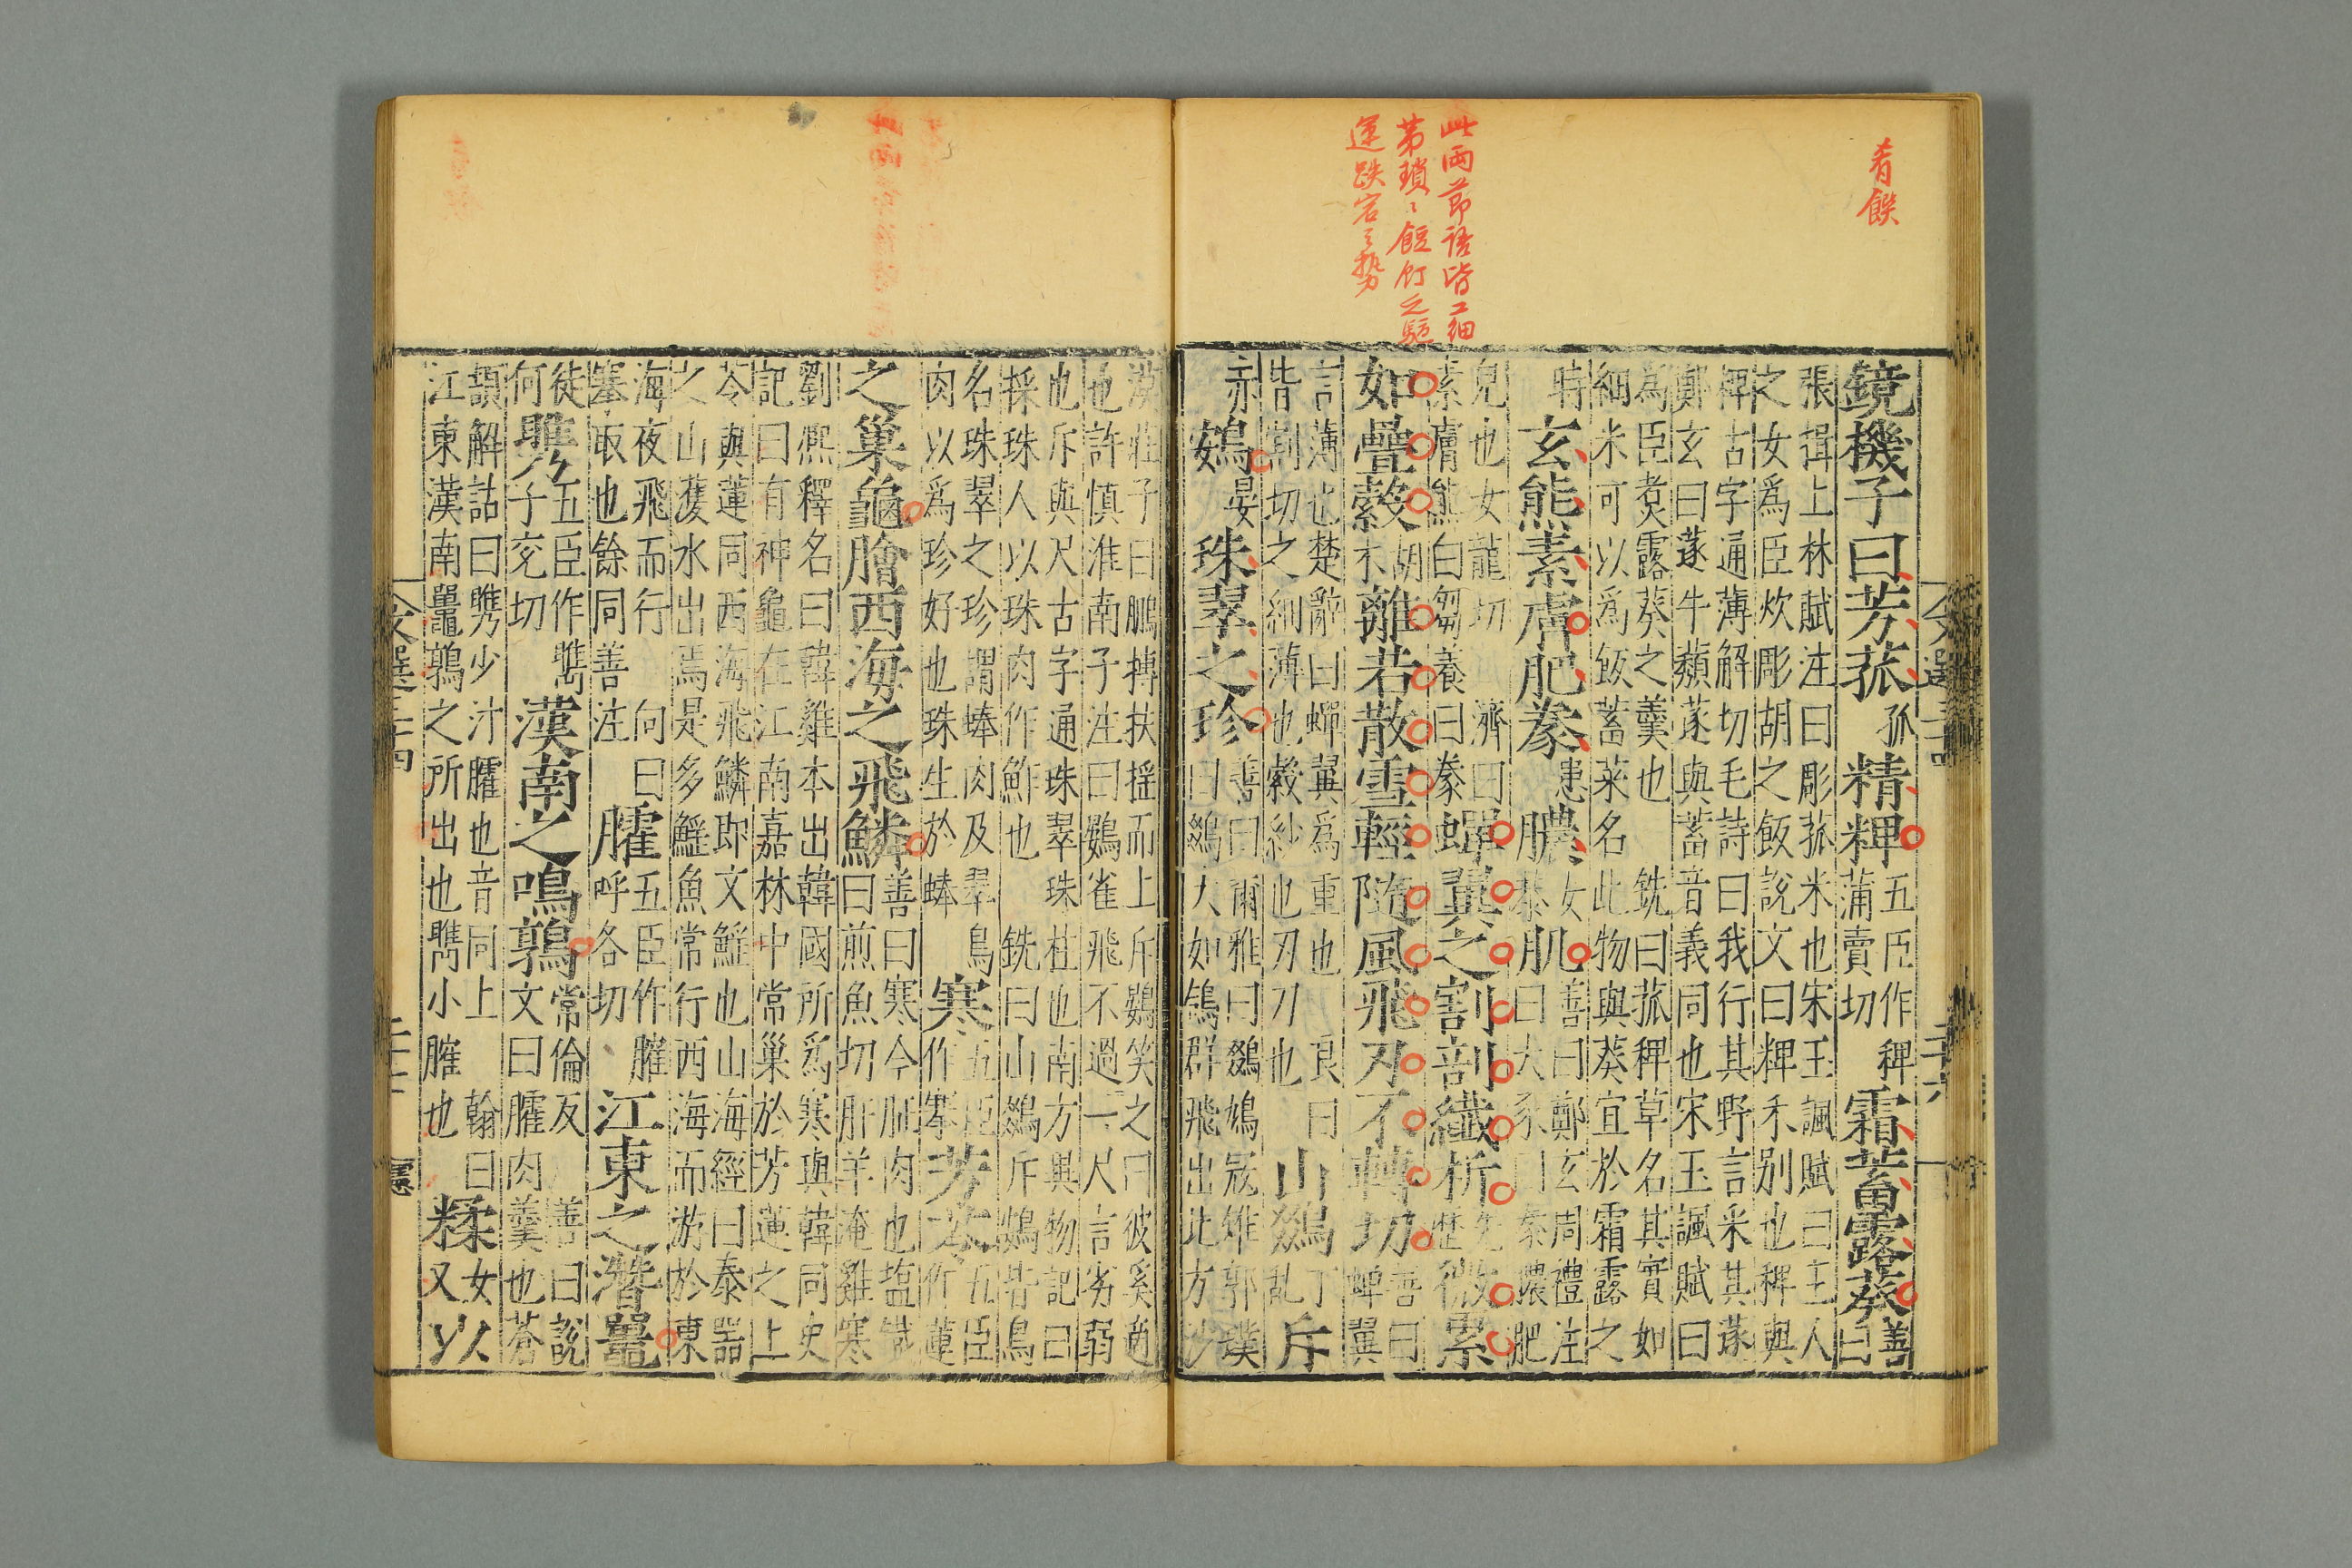 肴饌
此兩節語皆工細
第瑣〻飣之
運跌宕之勢
鏡機子曰芳菰孤精粺五臣作稗蒲賣切霜蓄露葵善曰
張揖上林賦注曰彫菰米也宋玉諷賦曰主人
之女爲臣炊彫胡之飯說文曰粺禾別也稗與
粺古字通薄解切毛詩曰我行其野言采其蓫
鄭玄曰蓫牛蘈蓫與蓄音義同也宋玉諷賦曰
為臣煑露葵之羹也銑曰菰稗草名其實如
細米可以爲飯蓄菜名此物與葵宜於霜露之
時玄熊素膚肥豢患膿肌善曰鄭玄周禮注
曰犬豕曰豢膿肥
皃也女龍切濟曰
素膚熊白芻養曰豢蟬翼之割剖纖析微累
如疊縠胡木離若散雪輕隨風飛刃不轉切善曰蟬翼
言薄也楚辭曰蟬翼爲重也良曰
皆割切之細薄也縠紗也刃刀也山鵽丁刮斥
赤鷃晏珠翠之珍善曰爾雅曰鵽鳩冦雉郭璞
曰鵽大如鴿群飛出北方沙
漠莊子曰鵬摶扶摇而上斥鷃笑之曰彼奚適
也許慎淮南子注曰鷃雀飛不過一尺言劣弱
也斥與尺古字通珠翠珠柱也南方異物記曰
採珠人以珠肉作鮓也銑曰山鵽斥鷃皆鳥
名珠翠之珍謂蜯肉及翠鳥
肉以爲珍好也珠生於蜯寒五臣作搴芳苓五臣作蓮
之巢龜膾西海之飛鱗善曰寒今胹肉也塩鐵
曰煎魚切肝羊淹雞寒
劉熈釋名曰韓雞本出韓國所爲寒與韓同史
記曰有神龜在江南嘉林中常巢於芳蓮之上
苓與蓮同西海飛鱗即文鰩也山海經曰泰器
之山濩水出焉是多鰩魚常行西海而游於東
海夜飛而行向曰
塞取也餘同善注臛五臣作臛呼各切江東之潛鼉
徒何臇五臣作鐫子兖切漢南之鳴鶉常倫反善曰說
文曰臛肉羹也蒼
頡解詁曰臇少汁臛也音同上翰曰
江東漢南鼉鶉之所出也臇小臛也糅女又以